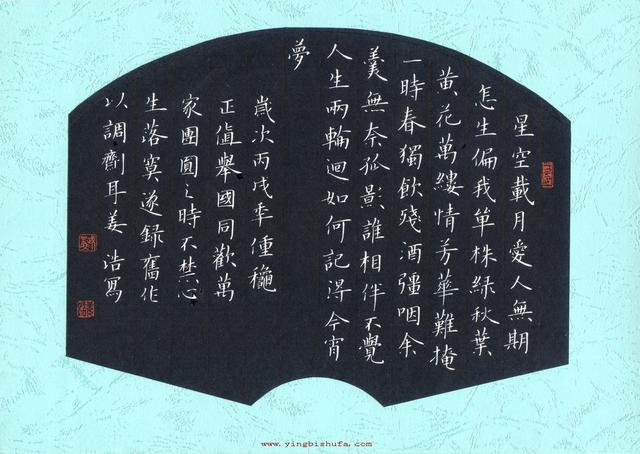 星空載月愛人無期
怎生偏我單株綠秋葉
黄花萬縷情芳華難掩
一時春獨飲殘酒彊咽余
羹無奈孤影誰相伴不覺
人生兩輪迴如何記得今宵
夢
歲次丙戌年偅龝
正值舉國同歡萬
家團圓之時不禁心
生落寞遂録舊作
以調劑耳姜浩寫
www.yingbishufa.com